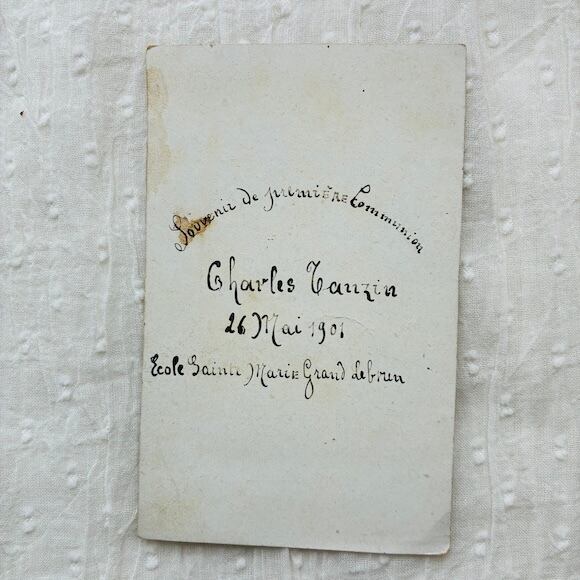 Souvenir de première Communion
Charles Tauzin
26 Mai 1901
Ecole Sainte Marie Grand Lebrun